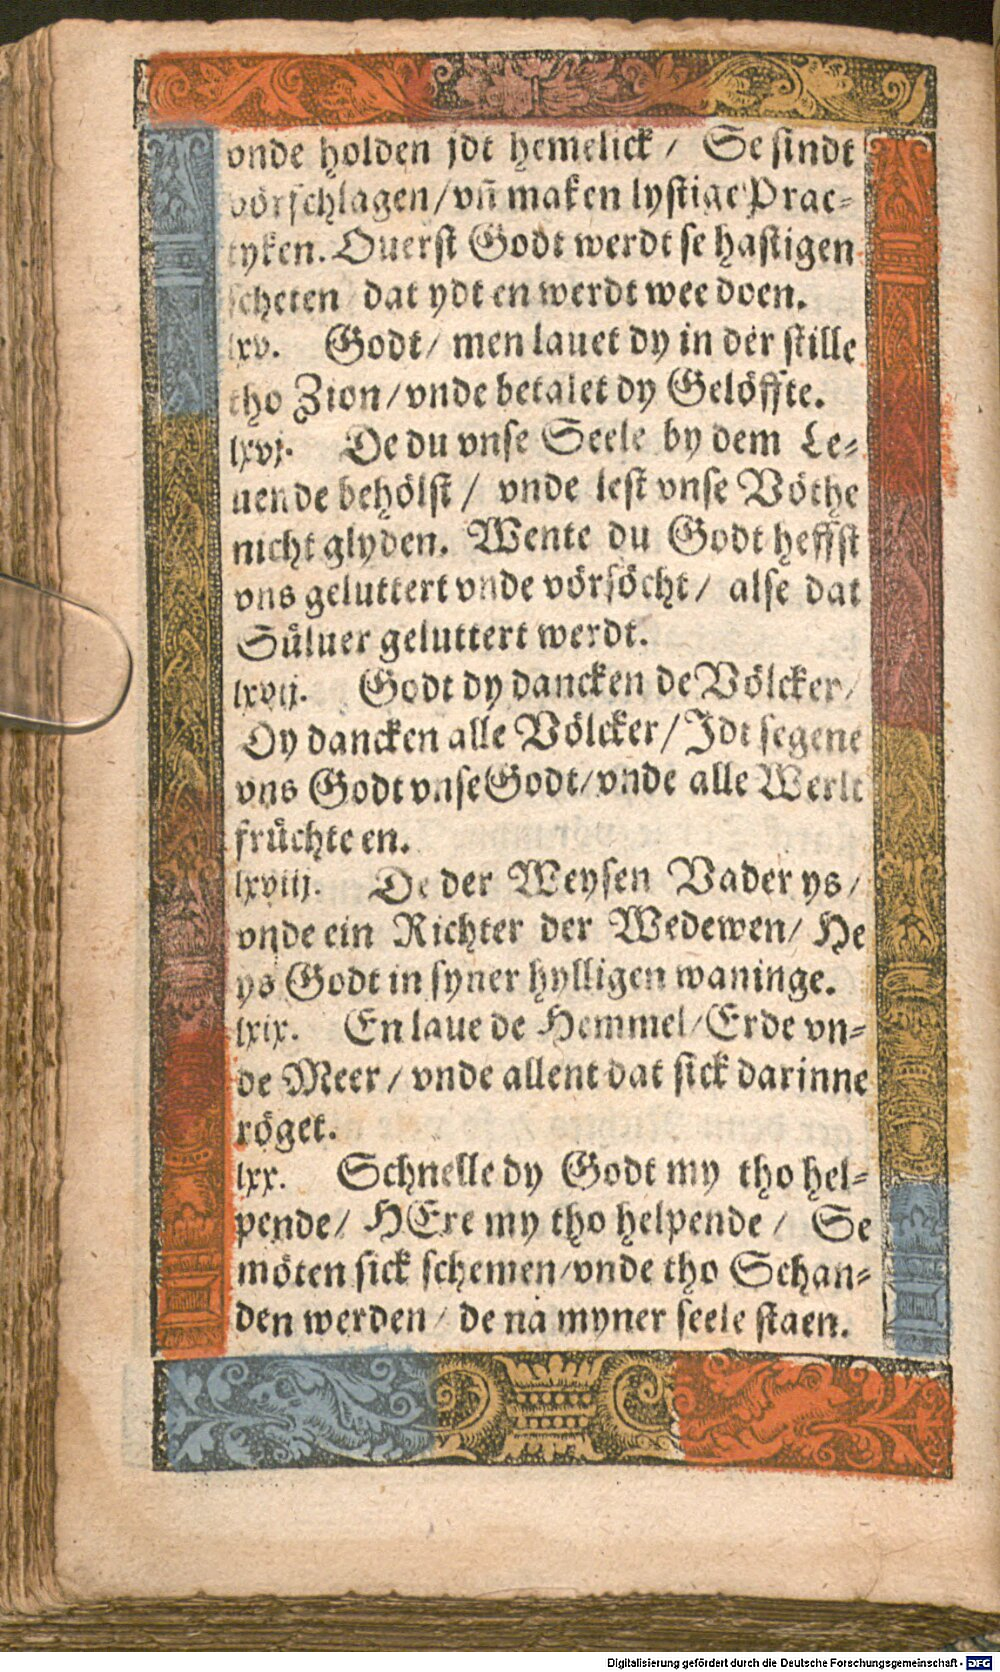 vnde holden jdt hemelick / Se sindt
vörschlagen/vn̄ maken lystige Prac⸗
tyken. Ouerst Godt werdt se hastigen
scheten dat ydt en werdt wee doen.
lxv. Godt/ men lauet dy in der stille
tho Zion/vnde betalet dy Gelöffte.
lxvj. De du vnse Seele by dem Le⸗
uende behölst / vnde lest vnse Vöthe
nicht glyden. Wente du Godt heffst
vns geluttert vnde vörsöcht/ alse dat
Süluer geluttert werdt.
lxvij. Godt dy dancken de Völcker/
Dy dancken alle Völcker/Jdt segene
vns Godt vnse Godt/vnde alle Werlt
früchte en.
lxviij. De der Weysen Vader ys/
vnde ein Richter der Wedewen/ He
ys Godt in syner hylligen waninge.
lxix. En laue de Hemmel/Erde vn⸗
de Meer/ vnde allent dat sick darinne
röget.
lxx. Schnelle dy Godt my tho hel⸗
pende/ HEre my tho helpende / Se
möten sick schemen/vnde tho Schan⸗
den werden/ de na myner seele staen.
Digitalisierung gefördert durch die Deutsche Forschungsgemeinschaft - DFG